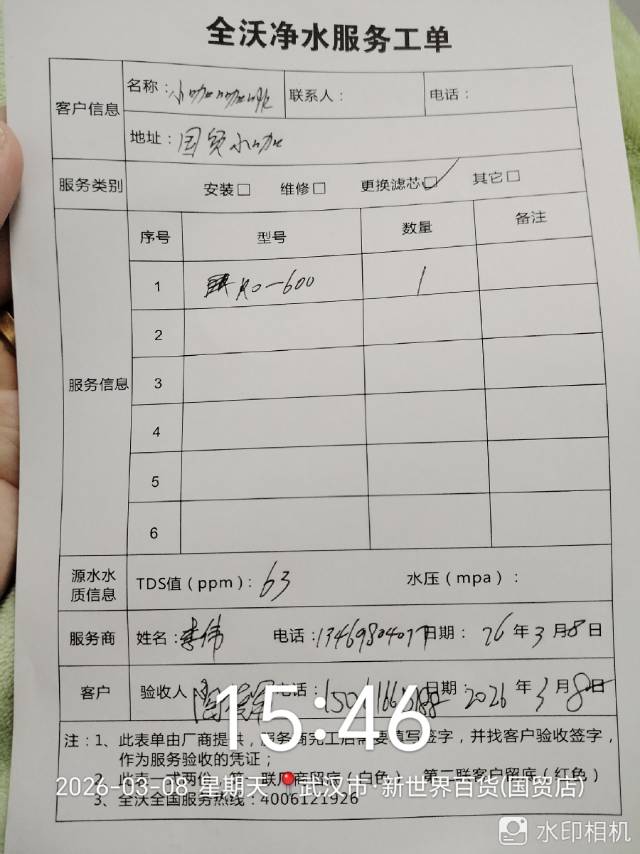 全沃净水服务工单
客户信息
名称：小咖咖啡 联系人： 电话：
地址：国贸小咖
服务类别 安装□ 维修□ 更换滤芯☑ 其它□
服务信息
序号 型号 数量 备注
1 RO-600 1
2
3
4
5
6
源水水质信息 TDS值（ppm）：63 水压（mpa）：
服务商 姓名：李伟 电话：13469804077 日期：26 年 3 月 8 日
客户 验收人 电话： 日期：2026 年 3 月 8 日
15:46
注：1、此表单由厂商提供，服务商完工后需要填写签字，并找客户验收签字，
作为服务验收的凭证；
2、此表一式两份，第一联厂商留底（白色），第二联客户留底（红色）
2026-03-08 星期天 武汉市·新世界百货(国贸店)
3、全沃全国服务热线：4006121926
水印相机